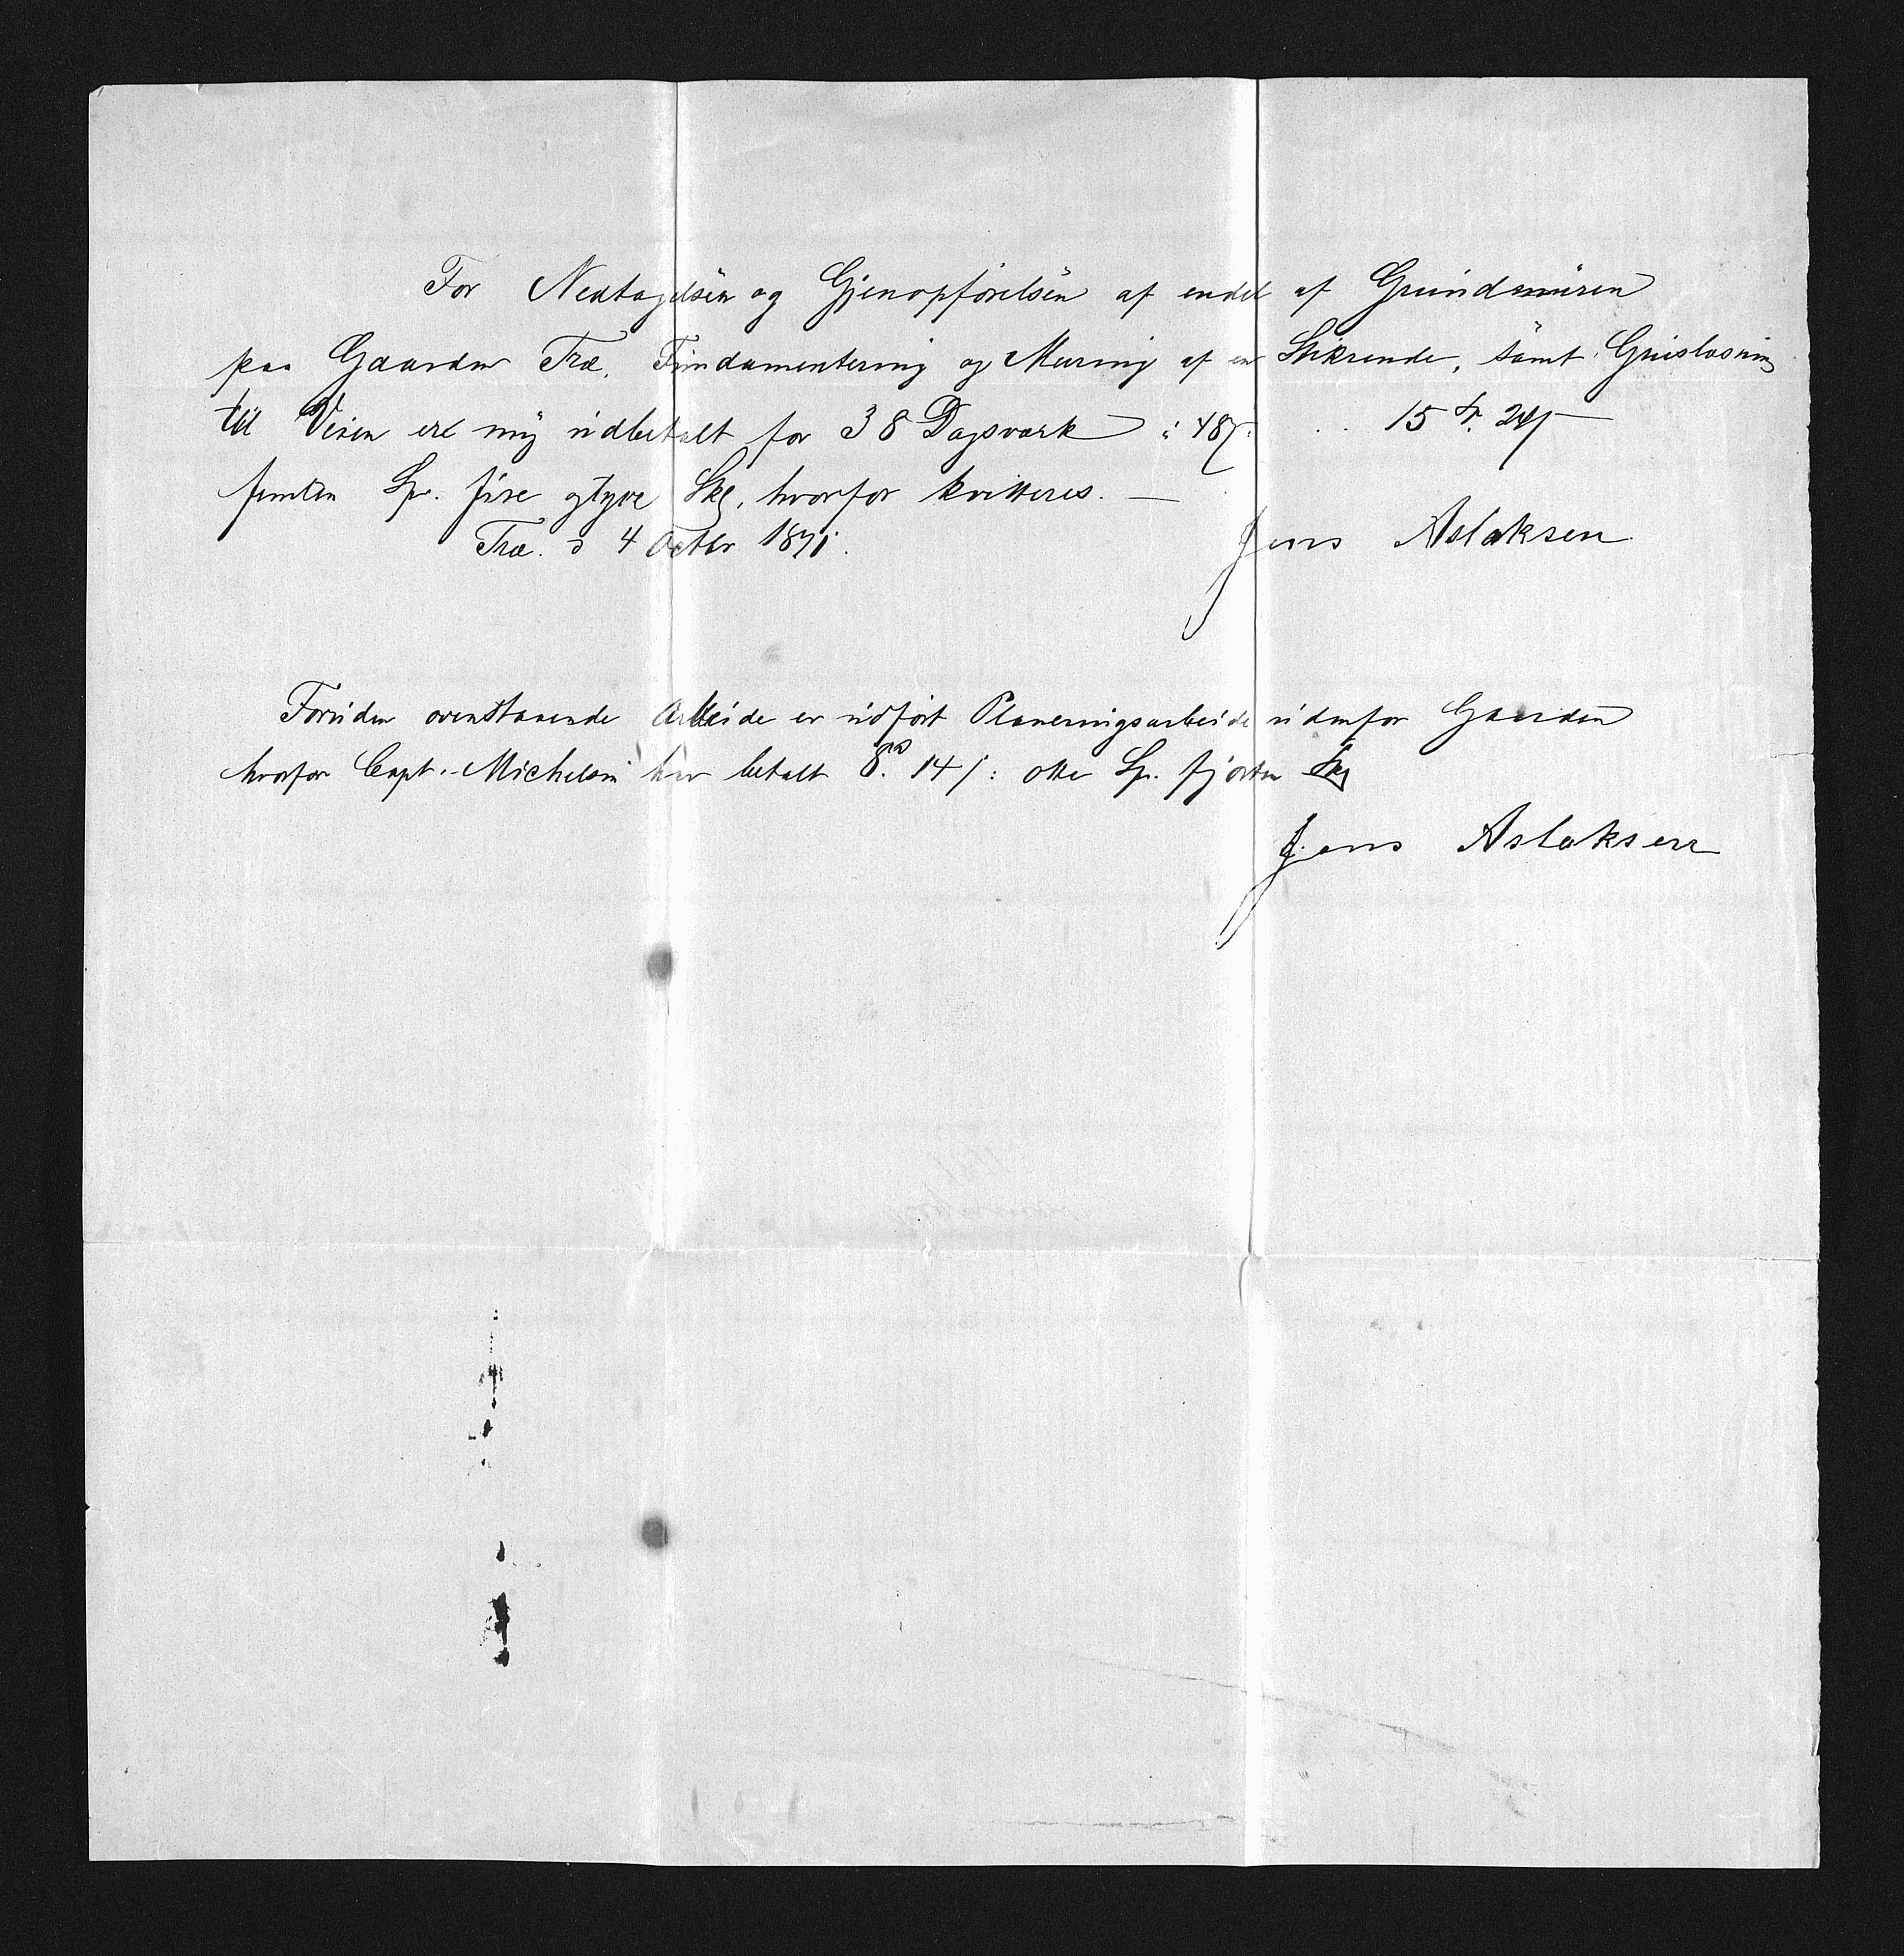 For Nedtagelsen og Gjenopførelsen af endel af Grundmuren
paa Gaarden Træ, Fundamentering og Muring af en Stikrende, samt Gruslosning
til Veien ere mig udbetalt for 38 Dagsværk à 48 ß: .. 15 Sp. 24 ß
femten Sp. fire ogtyve Skl, hvorfor kvitteres. —
Træ. d 4 Octbr 1871.
Jens Aslaksen
Foruden ovenstaaende Arbeide er udført Planeringsarbeide udenfor Gaarden
hvorfor Capt. Michelsen har betalt 8. 14 ß: otte Sp. fjorten Sk
Jens Aslaksen